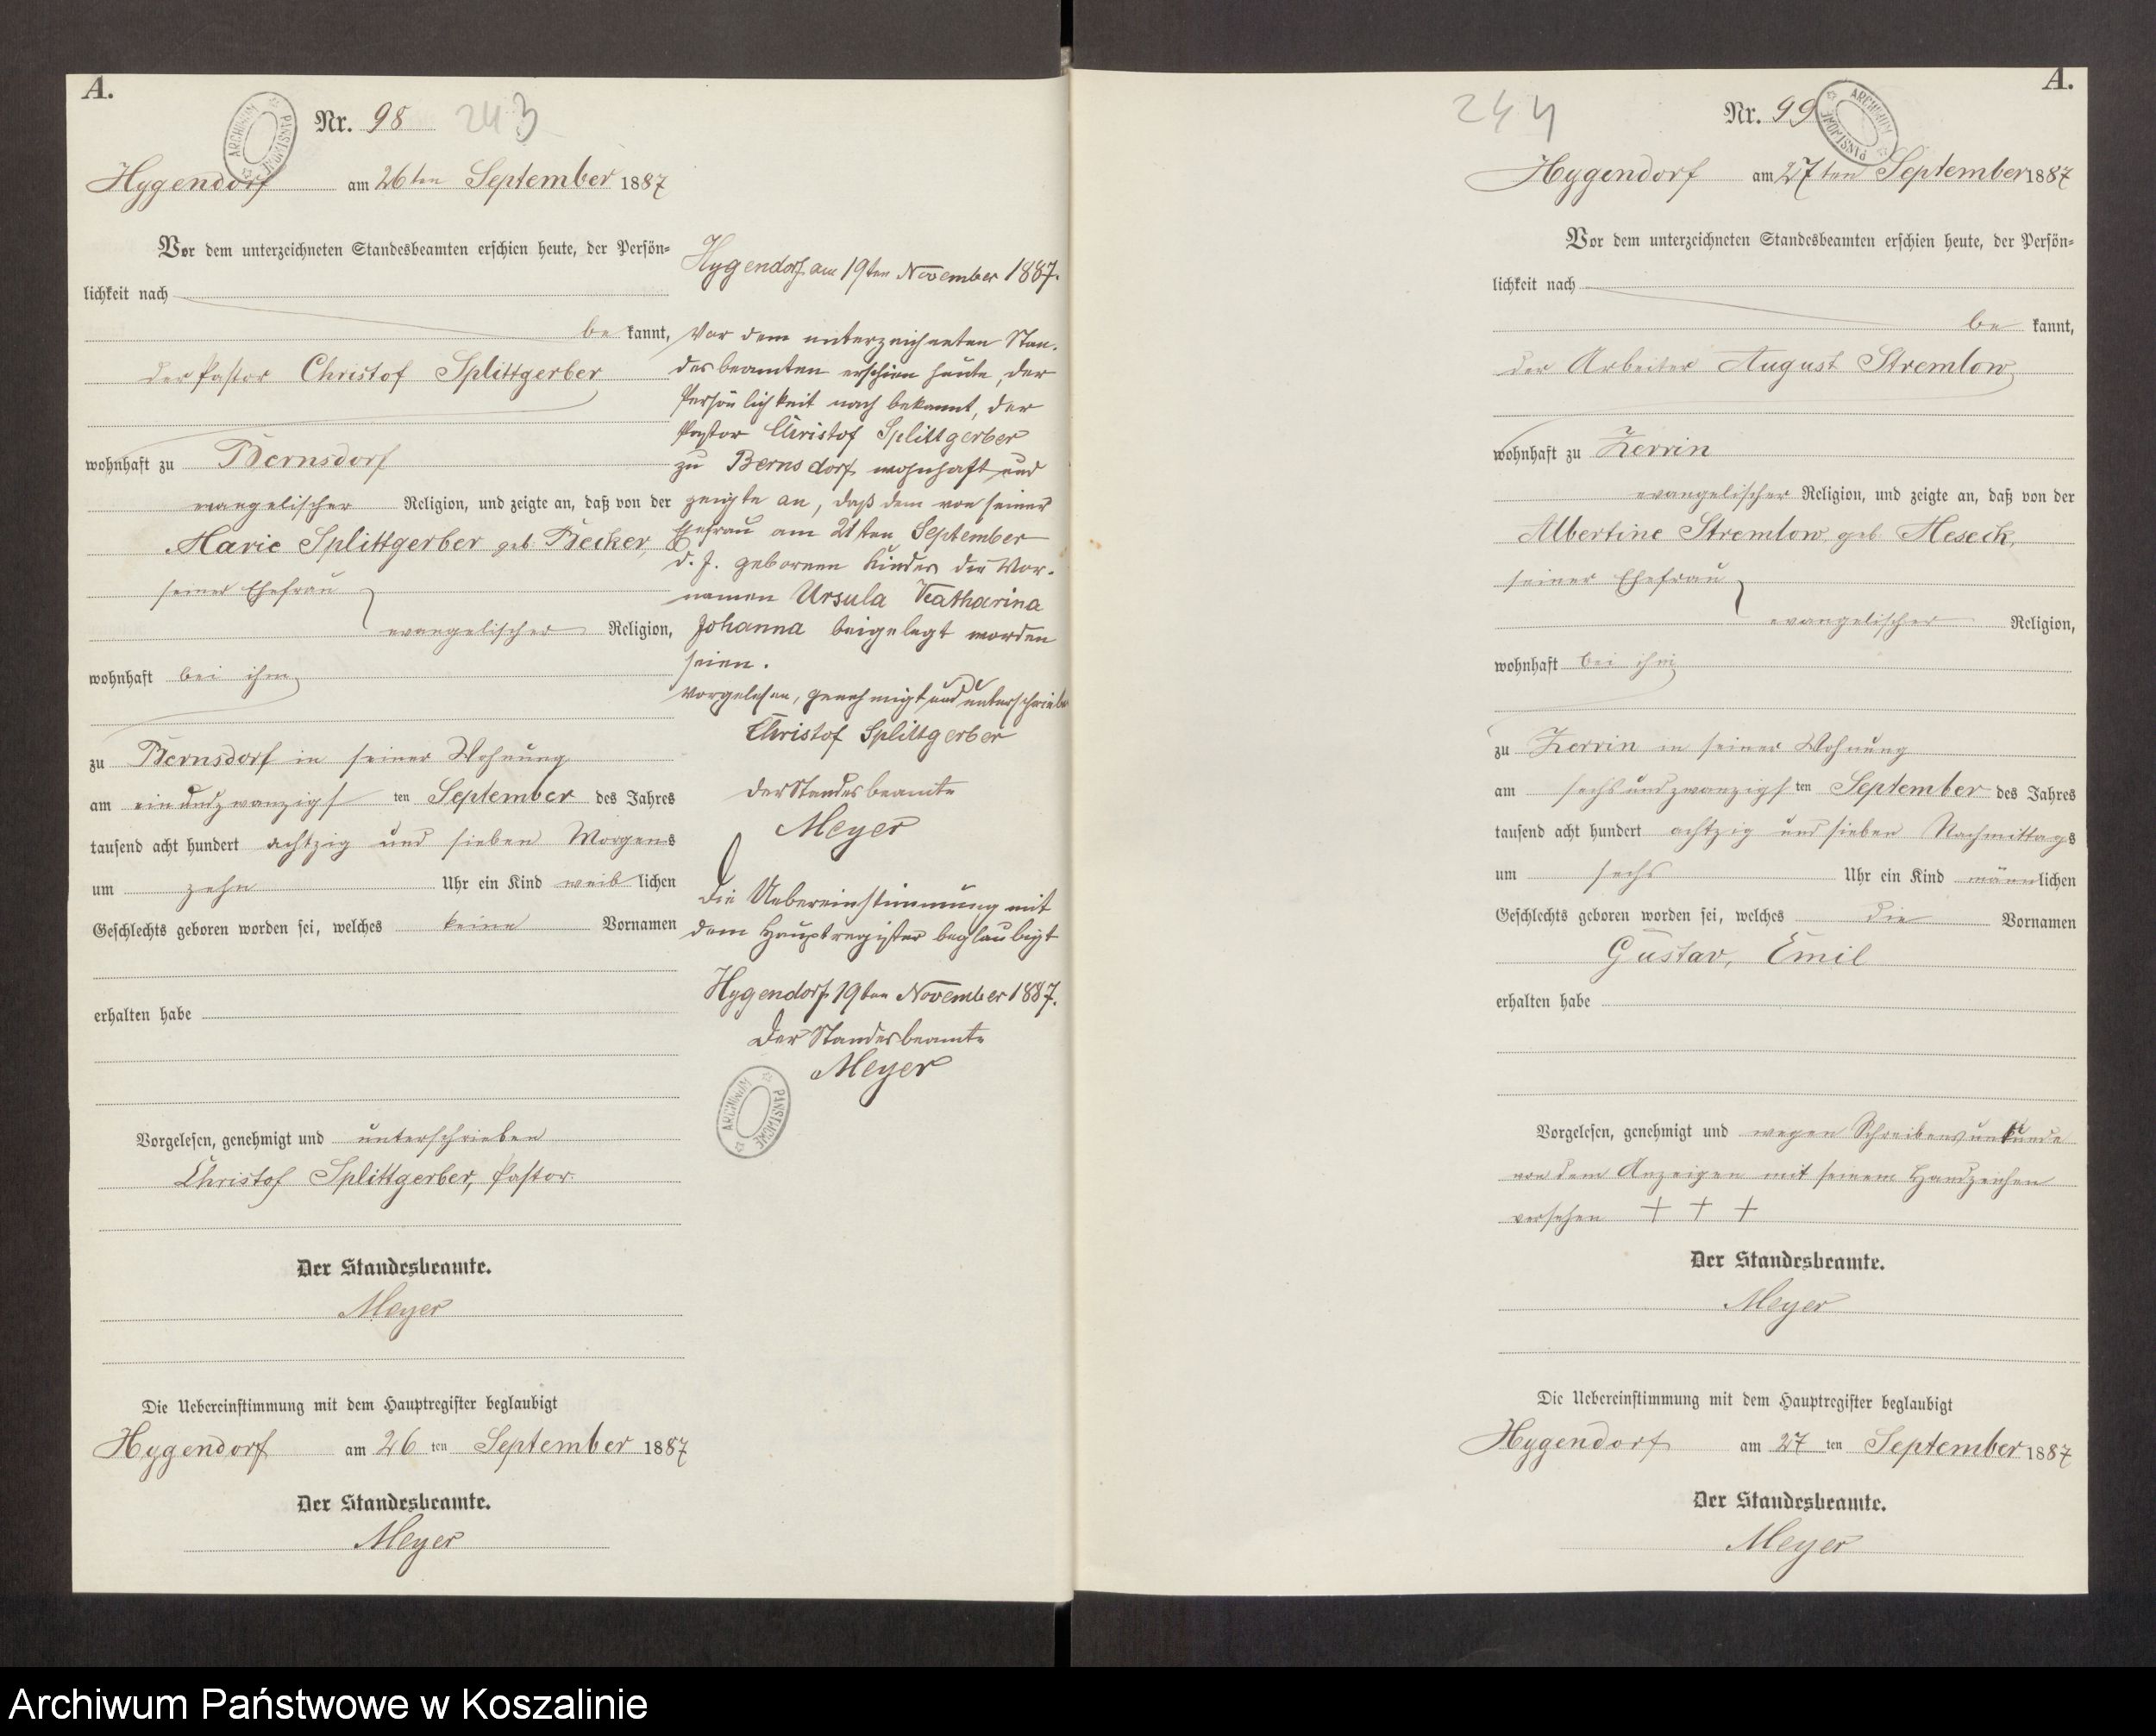 A.
Nr. 98 243
ARCHIWUM PAŃSTWOWE
Hygendorf am 26ten September 1887
Vor dem unterzeichneten Standesbeamten erschien heute, der Persön-
lichkeit nach
be kannt,
der Pastor Christof Splittgerber
wohnhaft zu Bernsdorf
evangelischer Religion, und zeigte an, daß von der
Marie Splittgerber geb. Becker,
seiner Ehefrau
evangelischer Religion,
wohnhaft bei ihm
zu Bernsdorf in seiner Wohnung
am ein und zwanzigs ten September des Jahres
tausend acht hundert achtzig und sieben Morgens
um zehn Uhr ein Kind weib lichen
Geschlechts geboren worden sei, welches keine Vornamen
erhalten habe
Vorgelesen, genehmigt und unterschrieben
Christof Splittgerber, Pastor.
Der Standesbeamte.
Meyer
Die Uebereinstimmung mit dem Hauptregister beglaubigt
Hygendorf am 26 ten September 1887
Der Standesbeamte.
Meyer
Hygendorf am 19ten November 1887.
Vor dem unterzeichneten Stan-
desbeamten erschien heute, der
Persönlichkeit nach bekannt, der
Pastor Christof Splittgerber
zu Bernsdorf wohnhaft und
zeigte an, daß dem von seiner
Ehefrau am 21ten September
d. J. geborenen Kinde die Vor-
namen Ursula Katharina
Johanna beigelegt worden
seien.
Vorgelesen, genehmigt und unterschrieben
Christof Splittgerber
Der Standesbeamte
Meyer
Die Uebereinstimmung mit
dem Hauptregister beglaubigt
Hygendorf 19ten November 1887.
Der Standesbeamte
Meyer
ARCHIWUM PAŃSTWOWE
A.
244 Nr. 99
ARCHIWUM PAŃSTWOWE
Hygendorf am 27ten September 1887
Vor dem unterzeichneten Standesbeamten erschien heute, der Persön-
lichkeit nach
be kannt,
der Arbeiter August Stremlow
wohnhaft zu Zerrin
evangelischer Religion, und zeigte an, daß von der
Albertine Stremlow geb. Heseck,
seiner Ehefrau
evangelischer Religion,
wohnhaft bei ihm
zu Zerrin in seiner Wohnung
am sechs und zwanzigs ten September des Jahres
tausend acht hundert achtzig und sieben Nachmittags
um sechs Uhr ein Kind männ lichen
Geschlechts geboren worden sei, welches die Vornamen
Gustav, Emil
erhalten habe
Vorgelesen, genehmigt und wegen Schreibensunkunde
von dem Anzeigen mit seinem Handzeichen
versehen + + +
Der Standesbeamte.
Meyer
Die Uebereinstimmung mit dem Hauptregister beglaubigt
Hygendorf am 27 ten September 1887
Der Standesbeamte.
Meyer
Archiwum Państwowe w Koszalinie